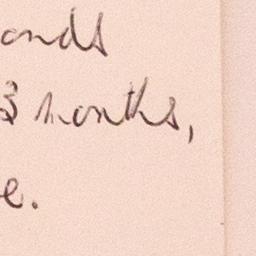 onds
3 months,
e.